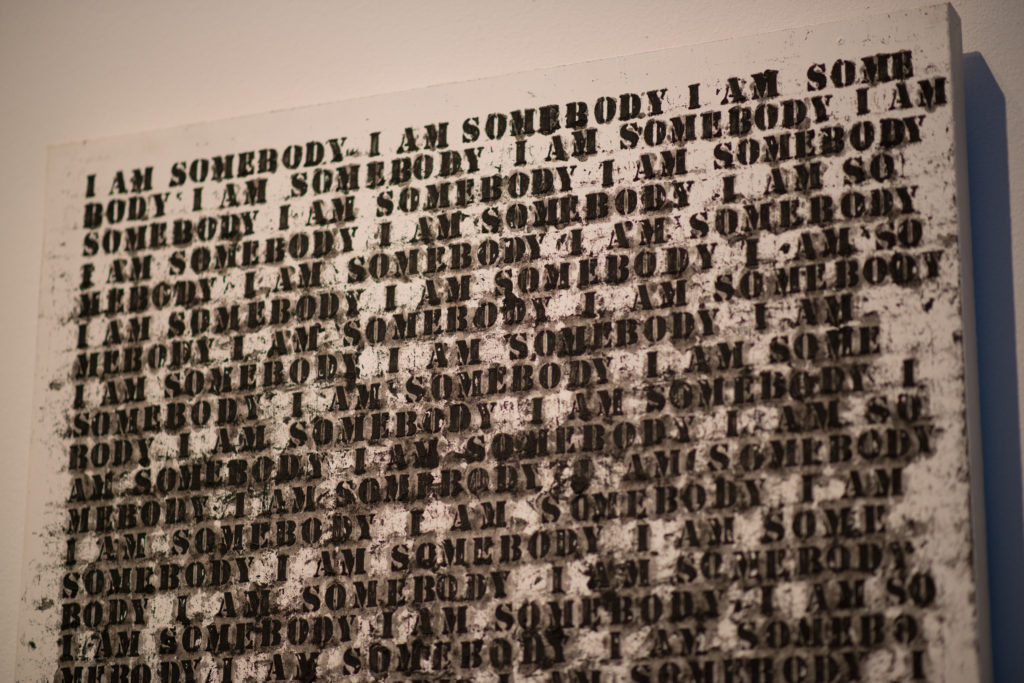 I AM SOMEBODY I AM SOMEBODY I AM SOME
BODY I AM SOMEBODY I AM SOMEBODY I AM
SOMEBODY I AM SOMEBODY I AM SOMEBODY
I AM SOMEBODY I AM SOMEBODY I AM SO
MEBODY I AM SOMEBODY I AM SOMEBODY
I AM SOMEBODY I AM SOMEBODY I AM SO
MEBODY I AM SOMEBODY I AM SOMEBODY
I AM SOMEBODY I AM SOMEBODY I AM
SOMEBODY I AM SOMEBODY I AM SOME
BODY I AM SOMEBODY I AM SOMEBODY I
AM SOMEBODY I AM SOMEBODY I AM SO
MEBODY I AM SOMEBODY I AM SOMEBODY
I AM SOMEBODY I AM SOMEBODY I AM
SOMEBODY I AM SOMEBODY I AM SOME
BODY I AM SOMEBODY I AM SOMEBODY
I AM SOMEBODY I AM SOMEBODY I AM SO
MEBODY I AM SOMEBODY I AM SOMEBO
SOMEBODY I